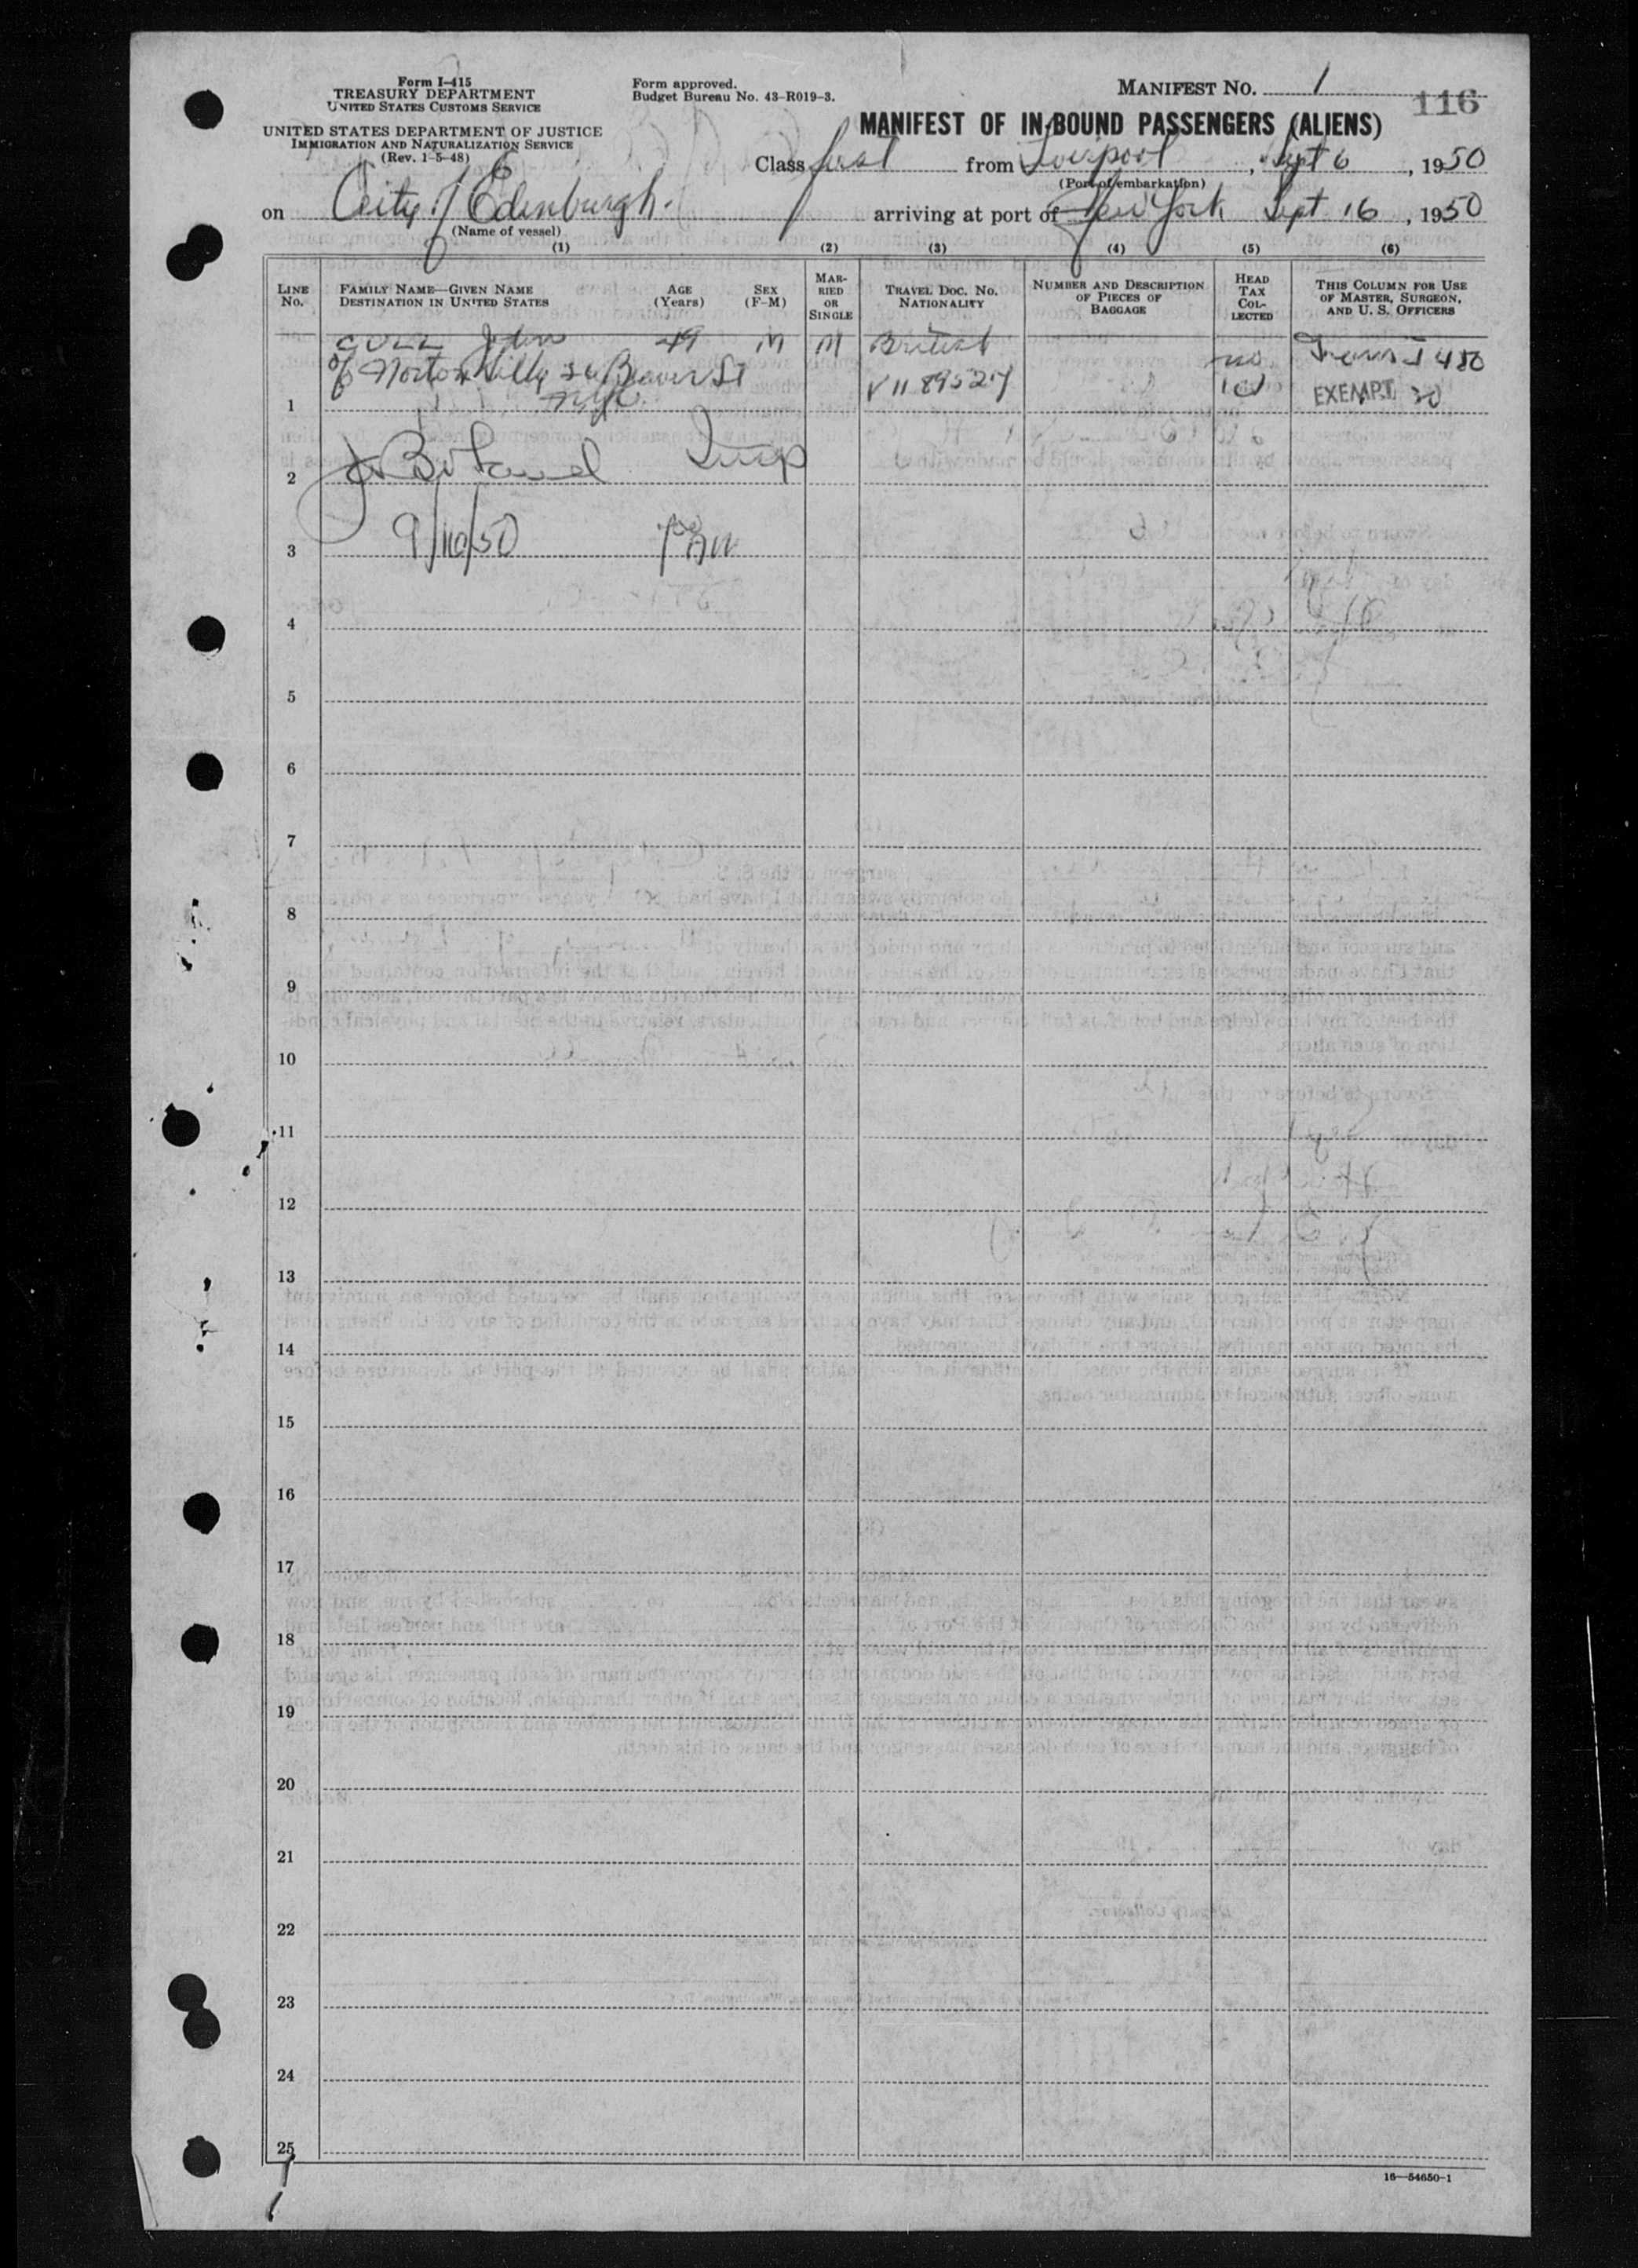 Form I-415
TREASURY DEPARTMENT
UNITED STATES CUSTOMS SERVICE
UNITED STATES DEPARTMENT OF JUSTICE
IMMIGRATION AND NATURALIZATION SERVICE
(Rev. 1-5-48)
Form approved.
Budget Bureau No. 43-R019-3.
MANIFEST NO. 1
116
MANIFEST OF IN-BOUND PASSENGERS (ALIENS)
Class first from Liverpool, Sept 6, 1950
(Port of embarkation)
on City of Edinburgh. arriving at port of New York Sept 16, 1950
(Name of vessel)
(1) (2) (3) (4) (5) (6)
LINE No.
FAMILY NAME—GIVEN NAME DESTINATION IN UNITED STATES
AGE (Years)
SEX (F-M)
MARRIED OR SINGLE
TRAVEL DOC. NO. NATIONALITY
NUMBER AND DESCRIPTION OF PIECES OF BAGGAGE
HEAD TAX COLLECTED
THIS COLUMN FOR USE OF MASTER, SURGEON, AND U. S. OFFICERS
John 49 M M British
Norton Lilly 26 Beaver St
NYC
EXEMPT 30
1
2
9/16/50
3
4
5
6
7
8
9
10
11
12
13
14
15
16
17
18
19
20
21
22
23
24
25
16—54650-1